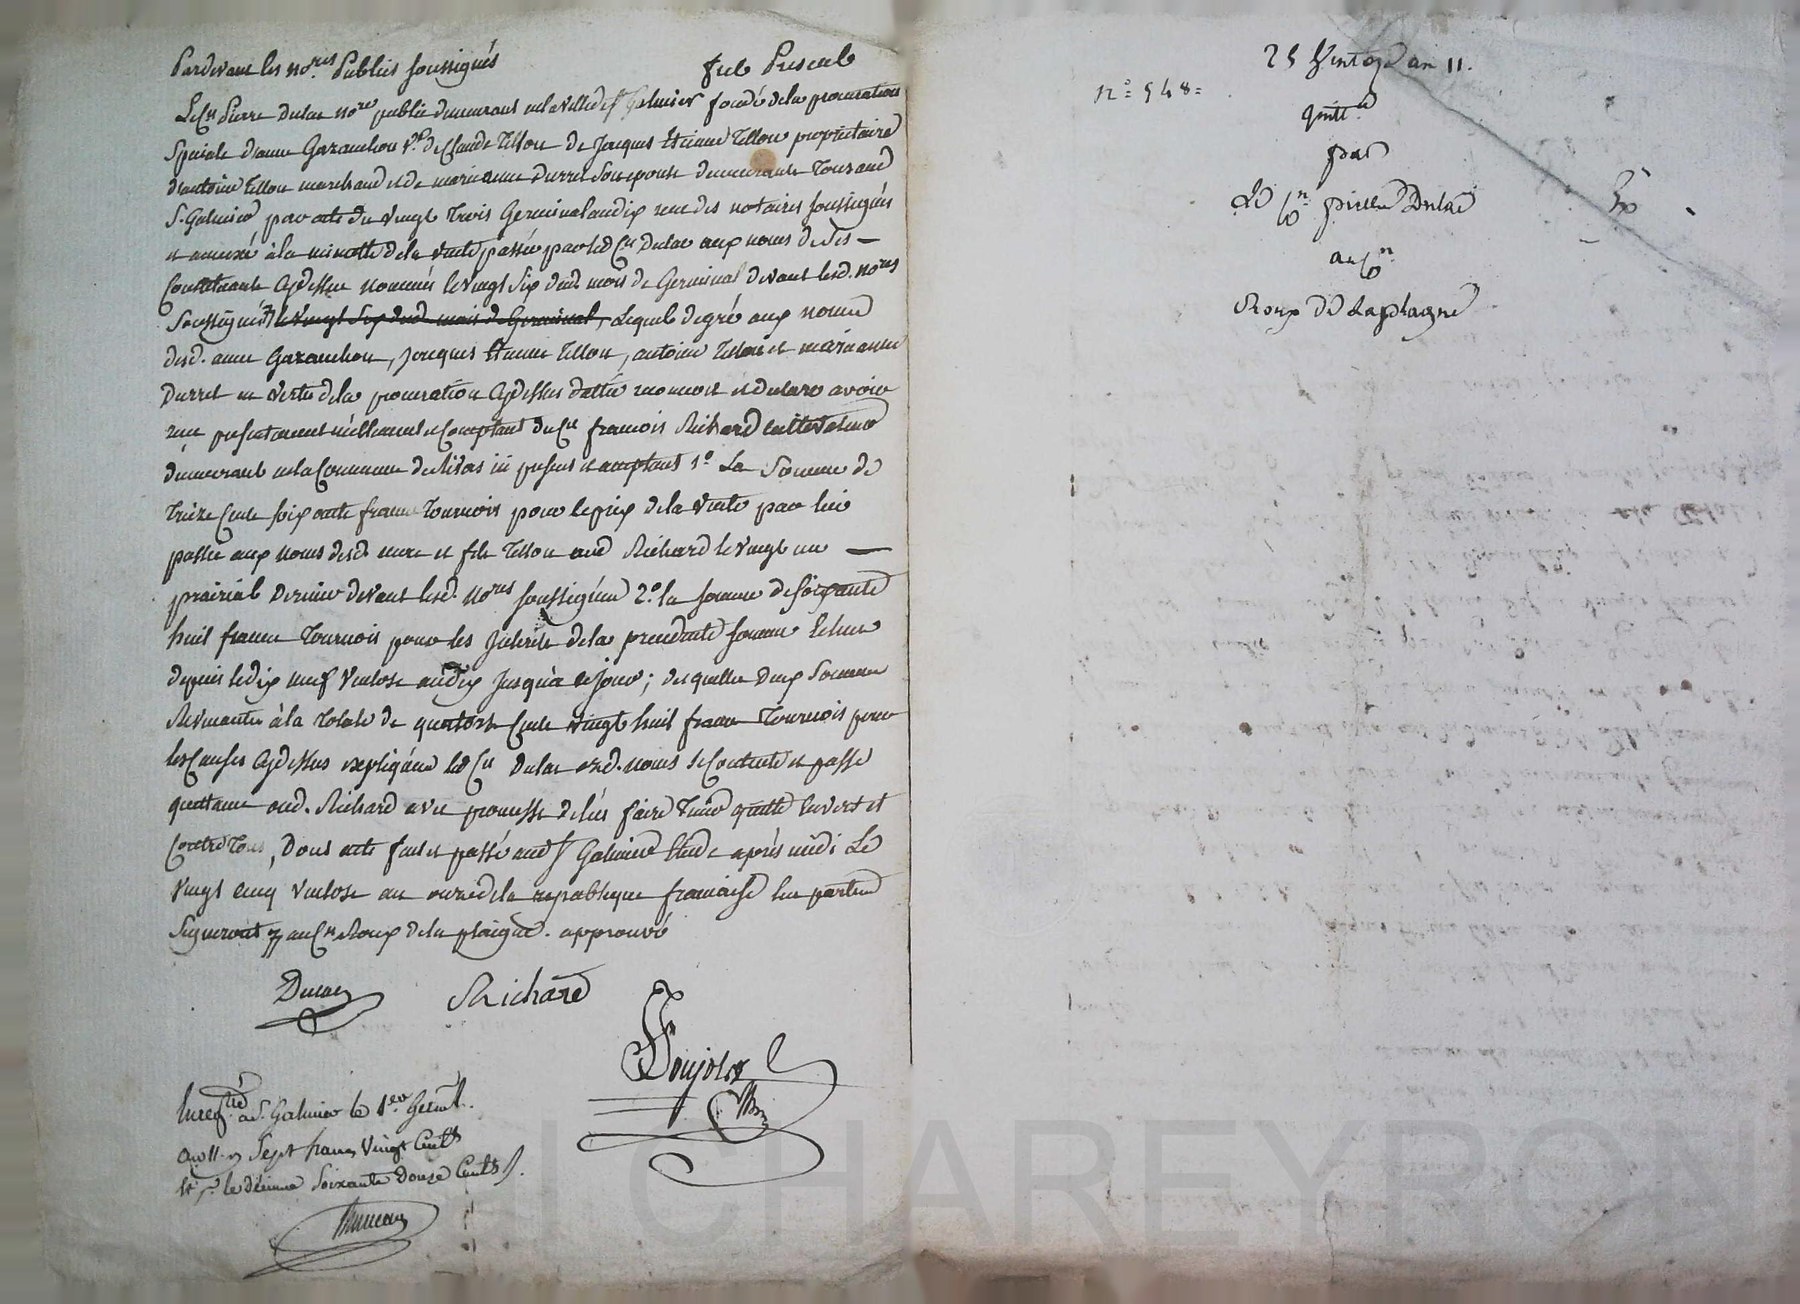 Pardevant les no.res Publics soussignés
fut Present
Le Cn Pierre Dulac no.re public demeurant en la ville de St Galmier fondé de la procuration
Speciale d'anne Garanchon v.e de Claude Tissou de Jacques Etienne Tissou propriétaire
d'antoine Tissou marchand et de marie anne Durret son epouse demeurants Tous aud
St Galmier par acte du vingt Trois Germinal an dix reçu des notaires soussignés
et annexé à la minutte de la vente passée par led Cn Dulac aux noms de ses —
Constituants Cydessus nommés le vingt Six dud. mois de Germinal devant lesd. no.res
Soussignés, le vingt Six dud. mois de Germinal, Lequel de gré aux noms
desd. anne Garanchon, Jacques Etienne Tissou, antoine Tissou et marie anne
Durret en vertu de la procuration Cydessus dattée reconnoit et declare avoir
reçu presentement réellement et Comptant du Cn francois Richard cultivateur
demeurant en la Commune de Rivas ici present et acceptant 1.o La Somme de
Treize Cents soixante francs Tournois pour le prix de la vente par lui
passée aux noms desd. mere et fils Tissou aud Richard le vingt un —
prairial Dernier devant lesd. no.res soussignés 2.o la somme de soixante
huit francs Tournois pour les Interets de la precedente somme Echus
depuis le dix neuf ventose an dix Jusqu'à ce jour; desquelles deux Sommes
Revenantes à la Totale de quatorze Cents vingt huit francs Tournois pour
les Causes Cydessus expliquées led Cn Dulac aud. noms se Contente et passe
quittance aud. Richard avec promesse de l'en faire Tenir quitte Envers et
Contre Tous, Dont acte fait et passé aud St Galmier Etude après midi Le
vingt cinq ventose an onze de la republique francaise Les parties
Signeront au Cn Roux de la plaigne. approuvé
Dulac
Richard
Poujolas
Enreg.tré a St Galmier le 1.er Germ.l
an 11. Sept francs Vingt Cent.s
Et p.r le dixieme Soixante Douze Cent.s
25 Ventose an 11.
N.o 948=
Quitt.ce
par
Le C.n pierre Dulac
au C.n
Roux De Laplagne
I CHAREYRON